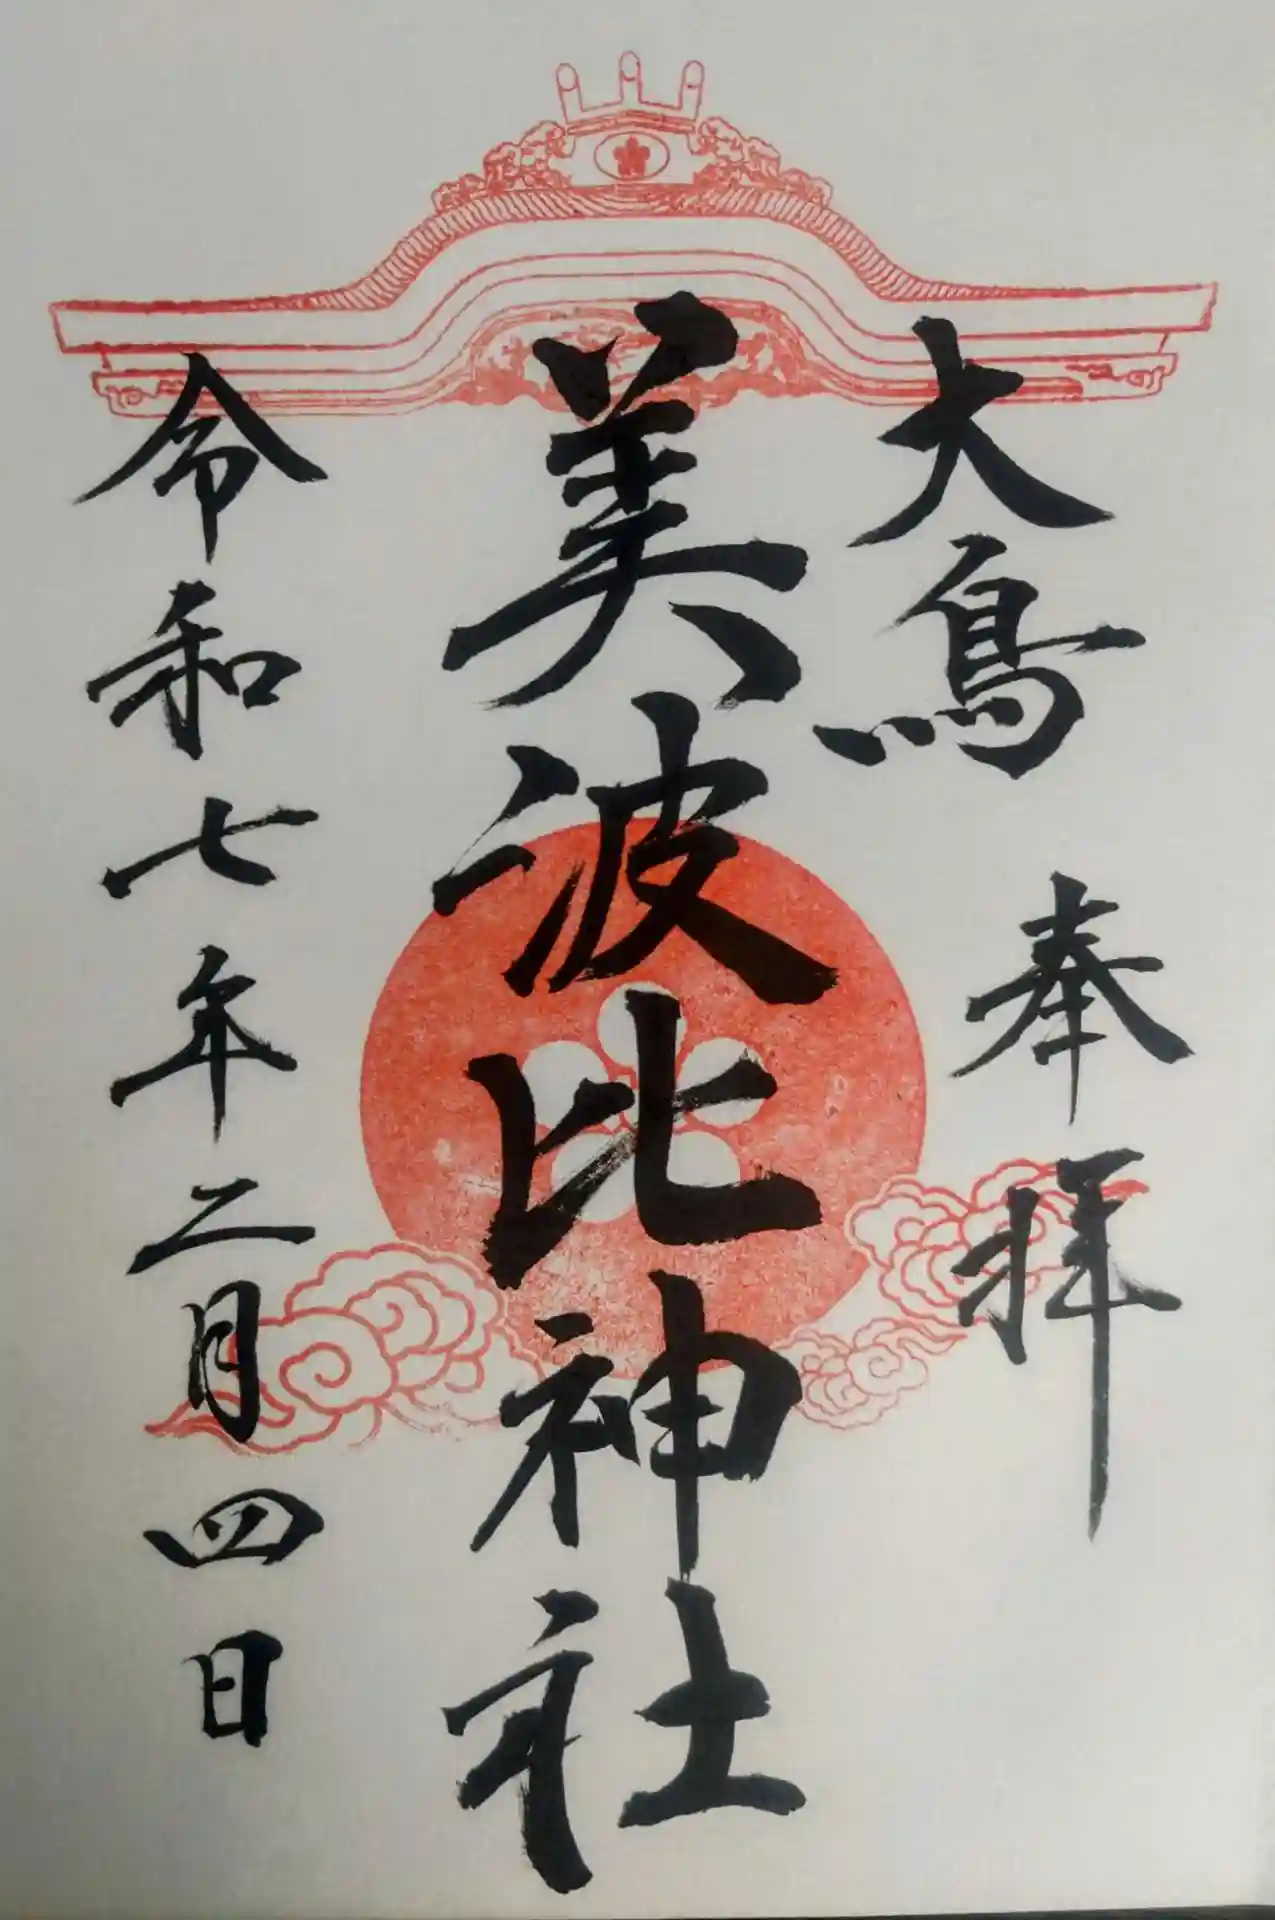 奉拝
大鳥
美波比神社
令和七年二月四日